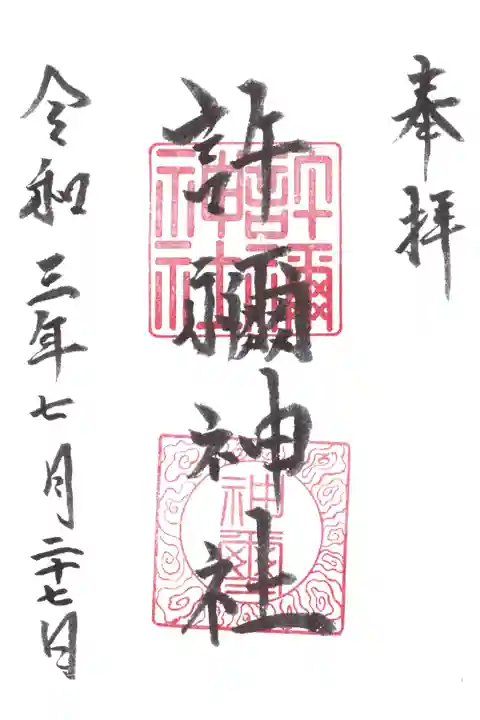 奉拝
許禰神社
許禰神社
神璽
令和三年七月二十七日